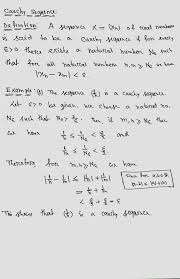 Cauchy Sequence
Definition: A sequence X = (xn) of real numbers
is said to be a Cauchy sequence if for every
ε>0 there exists a natural number Nε such
that for all natural numbers m,n ≥ Nε we have
|xn - xm| < ε
Example: The sequence (1/n) is a Cauchy sequence.
Let ε>0 be given, we choose a natural no.
Nε such that Nε > 2/ε. Then if m,n ≥ Nε then
we have 1/n ≤ 1/Nε < ε/2 and
1/m ≤ 1/Nε < ε/2
Therefore for m,n ≥ Nε we have
|1/n - 1/m| ≤ |1/n| + |1/m|
= 1/n + 1/m
< ε/2 + ε/2 = ε
This shows that (1/n) is a Cauchy sequence.